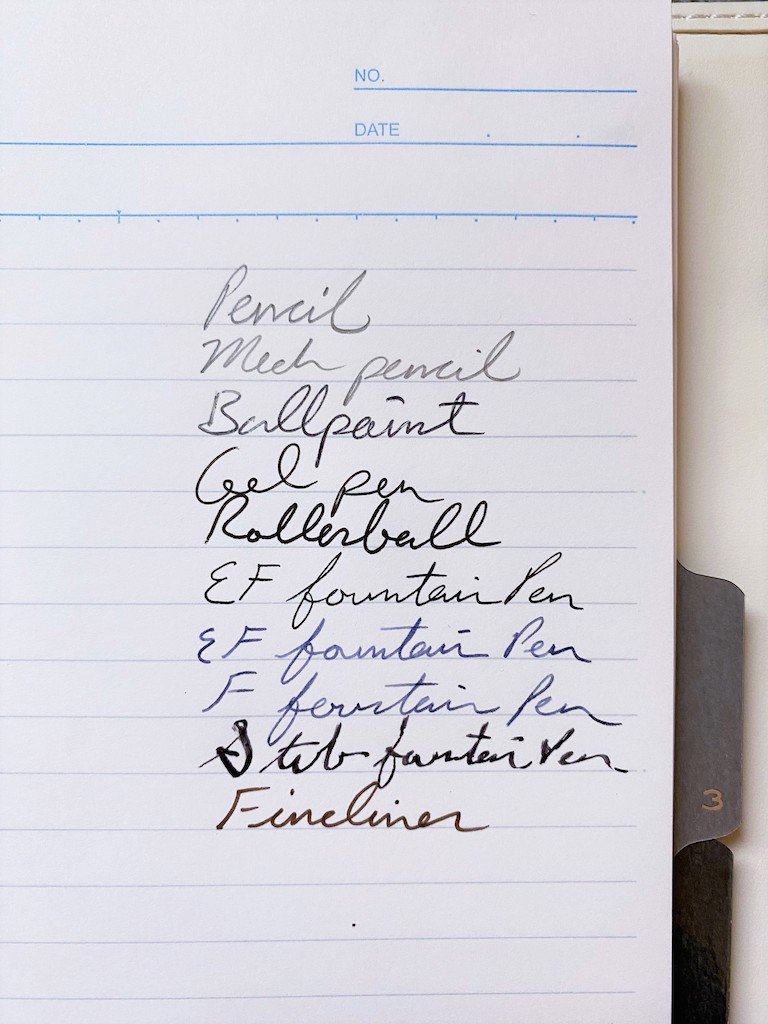 NO.
DATE
Pencil
Mech pencil
Ballpoint
Gel pen
Rollerball
EF fountain Pen
EF fountain Pen
F fountain Pen
Stub fountain Pen
Fineliner
3